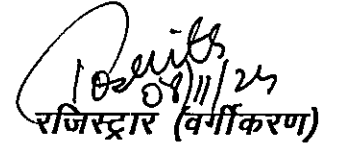 08/11/24
रजिस्ट्रार (वर्गीकरण)